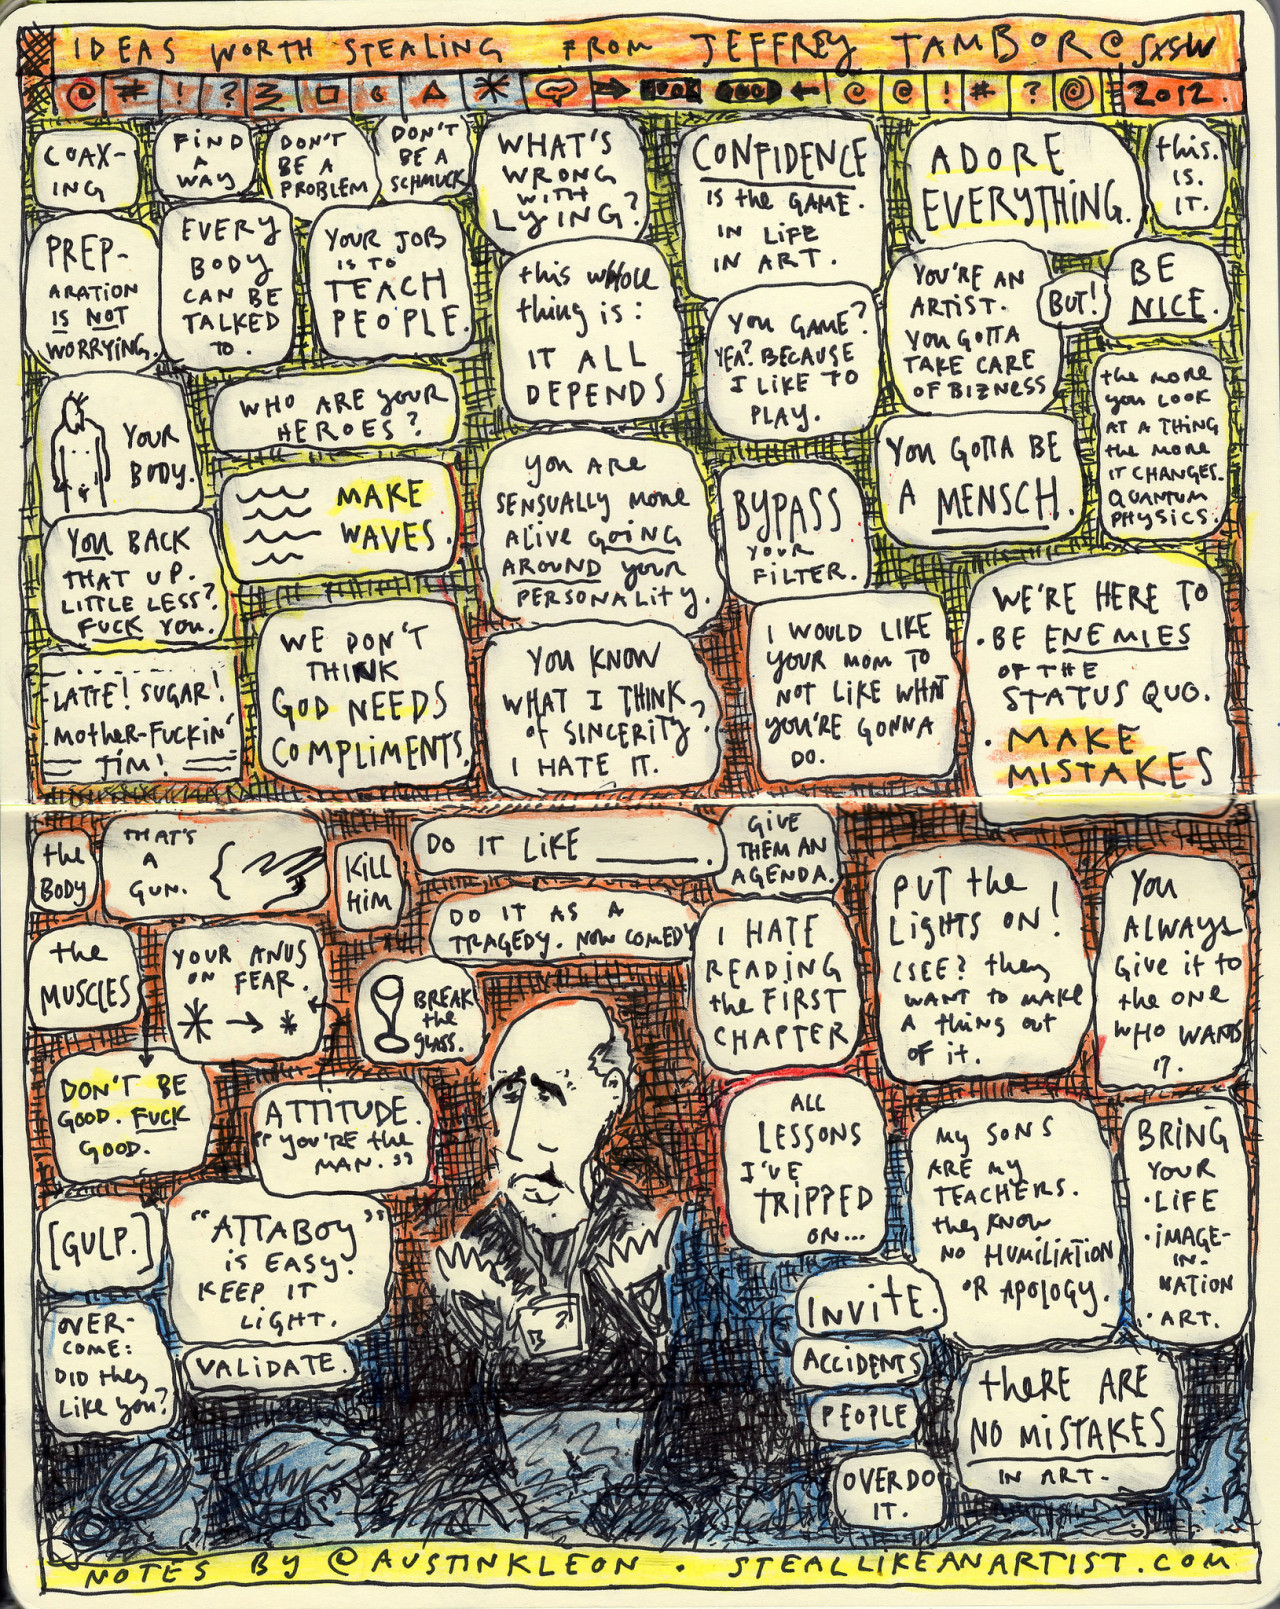 IDEAS WORTH STEALING FROM JEFFREY TAMBOR @ SXSW
2012.
COAX-
ING
FIND
A
WAY
DON'T
BE A
PROBLEM
DON'T
BE A
SCHMUCK
WHAT'S
WRONG
WITH
LYING?
CONFIDENCE
IS the GAME.
IN LIFE
IN ART.
ADORE
EVERYTHING.
this.
IS.
IT.
PREP-
ARATION
IS NOT
WORRYING.
EVERY
BODY
CAN BE
TALKED
TO.
YOUR JOB
IS TO
TEACH
PEOPLE.
this whole
thing is:
IT ALL
DEPENDS
YOU GAME?
YEA? BECAUSE
I LIKE TO
PLAY.
YOU'RE AN
ARTIST.
YOU GOTTA
TAKE CARE
OF BIZNESS
BUT!
BE
NICE.
YOUR
BODY.
WHO ARE YOUR
HEROES?
MAKE
WAVES.
YOU ARE
SENSUALLY MORE
ALIVE GOING
AROUND your
PERSONALITY.
BYPASS
YOUR
FILTER.
YOU GOTTA BE
A MENSCH.
the more
you LOOK
AT A THING
the more
IT CHANGES.
QUANTUM
PHYSICS.
YOU BACK
THAT UP.
LITTLE LESS?
FUCK YOU.
LATTE! SUGAR!
MOTHER-FUCKIN'
JIM!
WE DON'T
THINK
GOD NEEDS
COMPLIMENTS.
YOU KNOW
WHAT I THINK
of SINCERITY?
I HATE IT.
I WOULD LIKE
YOUR MOM TO
NOT LIKE WHAT
YOU'RE GONNA
DO.
WE'RE HERE TO
· BE ENEMIES
OF THE
STATUS QUO.
· MAKE
MISTAKES
the
BODY
THAT'S
A
GUN.
KILL
HIM
DO IT LIKE ______.
GIVE
THEM AN
AGENDA.
DO IT AS A
TRAGEDY. NOW COMEDY
the
MUSCLES
YOUR ANUS
ON FEAR.
BREAK
the
glass.
I HATE
READING
the FIRST
CHAPTER
PUT the
LIGHTS ON!
(SEE? they
WANT to MAKE
A thing out
OF it.
YOU
ALWAYS
Give it to
the ONE
WHO WANTS
IT.
DON'T BE
GOOD. FUCK
GOOD.
ATTITUDE.
"YOU'RE the
MAN."
ALL
LESSONS
I'VE
TRIPPED
ON...
MY SONS
ARE MY
TEACHERS.
they KNOW
NO HUMILIATION
OR APOLOGY.
BRING
YOUR
· LIFE
· IMAGE-
IN-
NATION
· ART.
[GULP.]
"ATTABOY"
is EASY.
KEEP IT
LIGHT.
VALIDATE.
OVER-
COME:
DID they
LIKE YOU?
INVITE.
ACCIDENTS
PEOPLE
OVERDO
IT.
theRE ARE
NO MISTAKES
IN ART-
NOTES BY @AUSTINKLEON · STEALLIKEANARTIST.COM